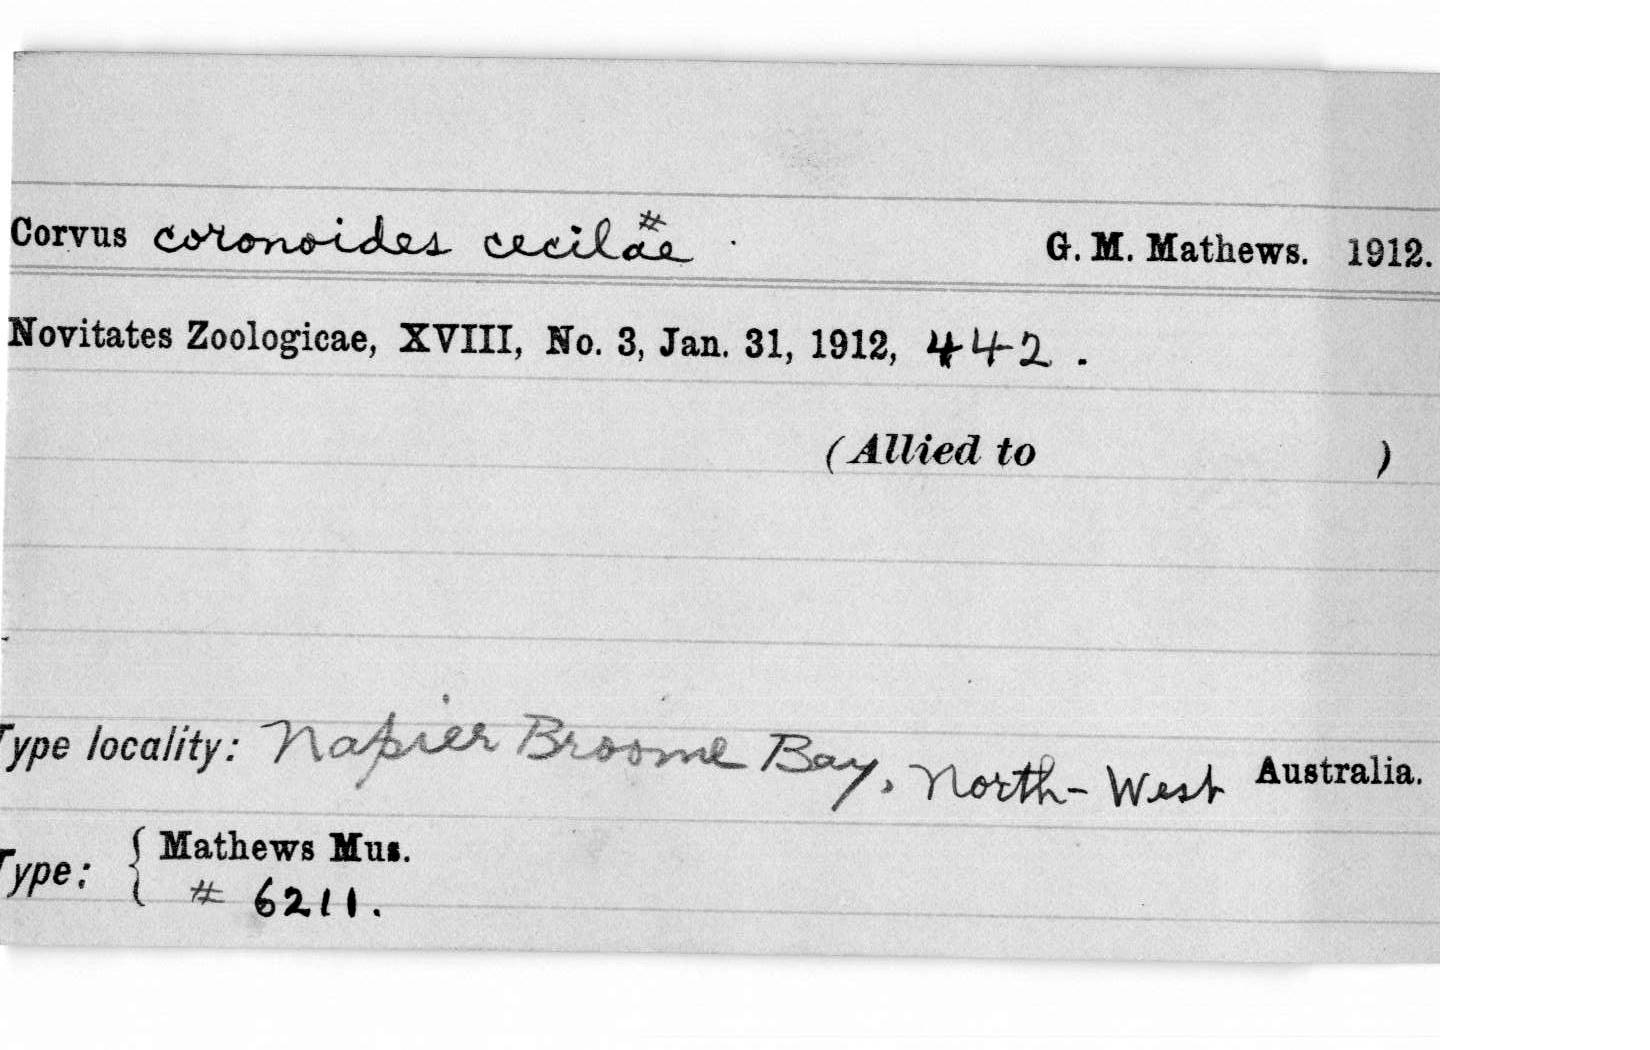 Corvus coronoides cecilae # . G. M. Mathews. 1912.
Novitates Zoologicae, XVIII, No. 3, Jan. 31, 1912, 442 .
(Allied to )
Type locality: Napier Broome Bay, North-West Australia.
Type: { Mathews Mus.
# 6211.